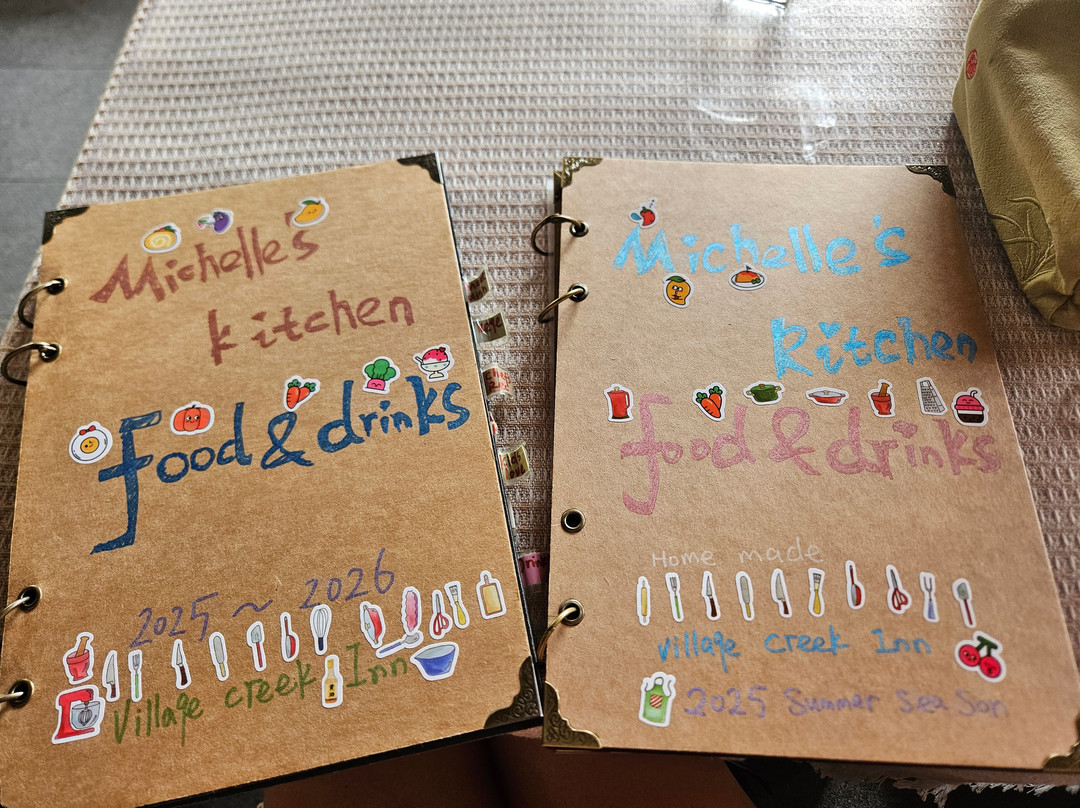 Michelle's
kitchen
food & drinks
2025 ~ 2026
Village creek Inn
Michelle's
Kitchen
food & drinks
Home made
village creek Inn
2025 Summer Sea Son